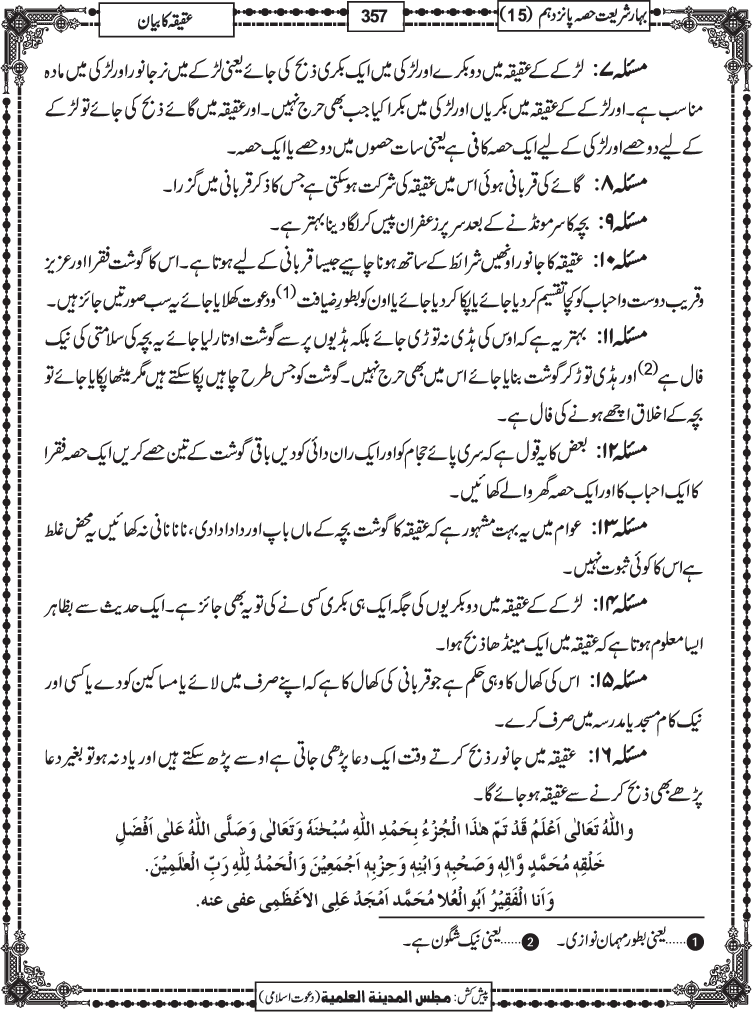 بہارِ شریعت حصہ پانزدہم (15)
357
عقیقہ کا بیان
مسئلہ ۷: لڑکے کے عقیقہ میں دو بکرے اور لڑکی میں ایک بکری ذبح کی جائے یعنی لڑکے میں نر جانور اور لڑکی میں مادہ
مناسب ہے۔ اور لڑکے کے عقیقہ میں بکریاں اور لڑکی میں بکرا کیا جب بھی حرج نہیں۔ اور عقیقہ میں گائے ذبح کی جائے تو لڑکے
کے لیے دو حصے اور لڑکی کے لیے ایک حصہ کافی ہے یعنی سات حصوں میں دو حصے یا ایک حصہ۔
مسئلہ ۸: گائے کی قربانی ہوئی اس میں عقیقہ کی شرکت ہوسکتی ہے جس کا ذکر قربانی میں گزرا۔
مسئلہ ۹: بچہ کا سر مونڈنے کے بعد سر پر زعفران پیس کر لگا دینا بہتر ہے۔
مسئلہ ۱۰: عقیقہ کا جانور اونھیں شرائط کے ساتھ ہونا چاہیے جیسا قربانی کے لیے ہوتا ہے۔ اس کا گوشت فقرا اور عزیز
و قریب دوست و احباب کو کچا تقسیم کر دیا جائے یا پکا کر دیا جائے یا اون کو بطور ضیافت (1) و دعوت کھلایا جائے یہ سب صورتیں جائز ہیں۔
مسئلہ ۱۱: بہتر یہ ہے کہ اوس کی ہڈی نہ توڑی جائے بلکہ ہڈیوں پر سے گوشت اوتار لیا جائے یہ بچہ کی سلامتی کی نیک
فال ہے (2) اور ہڈی توڑ کر گوشت بنایا جائے اس میں بھی حرج نہیں۔ گوشت کو جس طرح چاہیں پکا سکتے ہیں مگر میٹھا پکایا جائے تو
بچہ کے اخلاق اچھے ہونے کی فال ہے۔
مسئلہ ۱۲: بعض کا یہ قول ہے کہ سری پائے حجام کو اور ایک ران دائی کو دیں باقی گوشت کے تین حصے کریں ایک حصہ فقرا
کا ایک احباب کا اور ایک حصہ گھر والے کھائیں۔
مسئلہ ۱۳: عوام میں یہ بہت مشہور ہے کہ عقیقہ کا گوشت بچہ کے ماں باپ اور دادا دادی، نانا نانی نہ کھائیں یہ محض غلط
ہے اس کا کوئی ثبوت نہیں۔
مسئلہ ۱۴: لڑکے کے عقیقہ میں دو بکریوں کی جگہ ایک ہی بکری کسی نے کی تو یہ بھی جائز ہے۔ ایک حدیث سے بظاہر
ایسا معلوم ہوتا ہے کہ عقیقہ میں ایک مینڈھا ذبح ہوا۔
مسئلہ ۱۵: اس کی کھال کا وہی حکم ہے جو قربانی کی کھال کا ہے کہ اپنے صرف میں لائے یا مساکین کو دے یا کسی اور
نیک کام مسجد یا مدرسہ میں صرف کرے۔
مسئلہ ۱۶: عقیقہ میں جانور ذبح کرتے وقت ایک دعا پڑھی جاتی ہے اوسے پڑھ سکتے ہیں اور یاد نہ ہو تو بغیر دعا
پڑھے بھی ذبح کرنے سے عقیقہ ہو جائے گا۔
واللّٰهُ تَعَالٰی اَعْلَمُ قَدْ تَمَّ هٰذَا الْجُزْءُ بِحَمْدِ اللّٰهِ سُبْحٰنَهٗ وَتَعَالٰی وَصَلَّی اللّٰهُ عَلٰی اَفْضَلِ
خَلْقِهٖ مُحَمَّدٍ وَّاٰلِهٖ وَصَحْبِهٖ وَابْنِهٖ وَحِزْبِهٖ اَجْمَعِیْنَ وَالْحَمْدُ لِلّٰهِ رَبِّ الْعٰلَمِیْنَ.
وَاَنَا الْفَقِیْرُ اَبُو الْعُلا مُحَمَّد اَمْجَدْ عَلِی الاَعْظَمِی عفی عنه.
1 ......یعنی بطور مہمان نوازی۔ 2 ......یعنی نیک شگون ہے۔
پیش کش: مجلس المدينة العلمية (دعوت اسلامی)